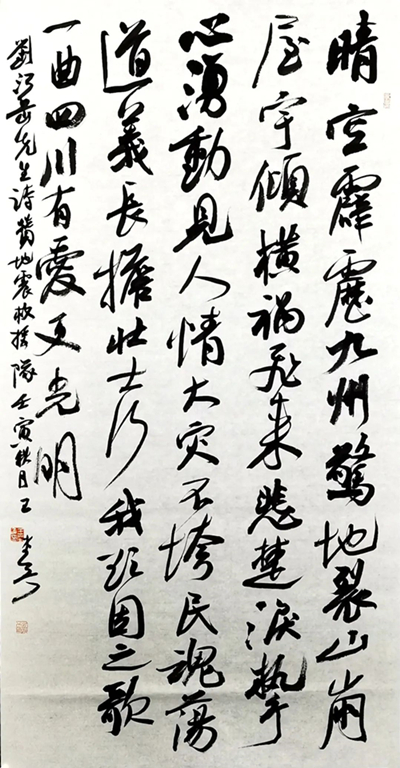 晴空霹靂九州驚地裂山崩
屋宇傾橫禍飛來悲楚淚執手
心湧動見人情大災不垮民魂蕩
道義長擔壯士行我頌因之歌
一曲四川有愛更光明
劉江岳先生詩贊地震救援隊壬寅秋月